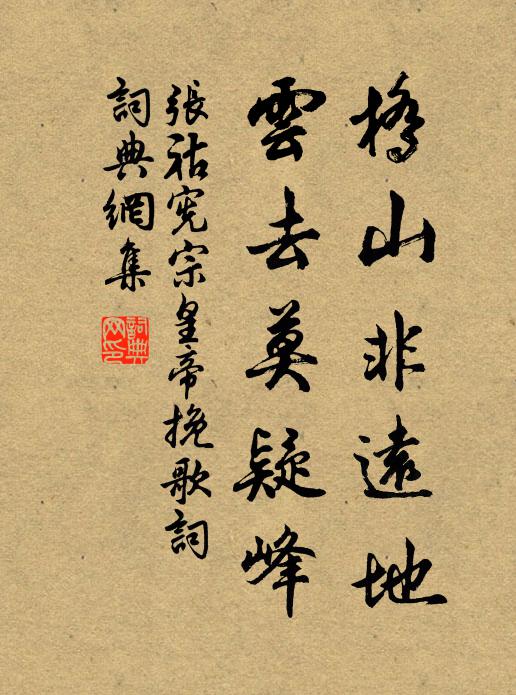 橋山非遠地
雲去莫疑峰
張祜憲宗皇帝挽歌詞
詞典網集
詞典網印